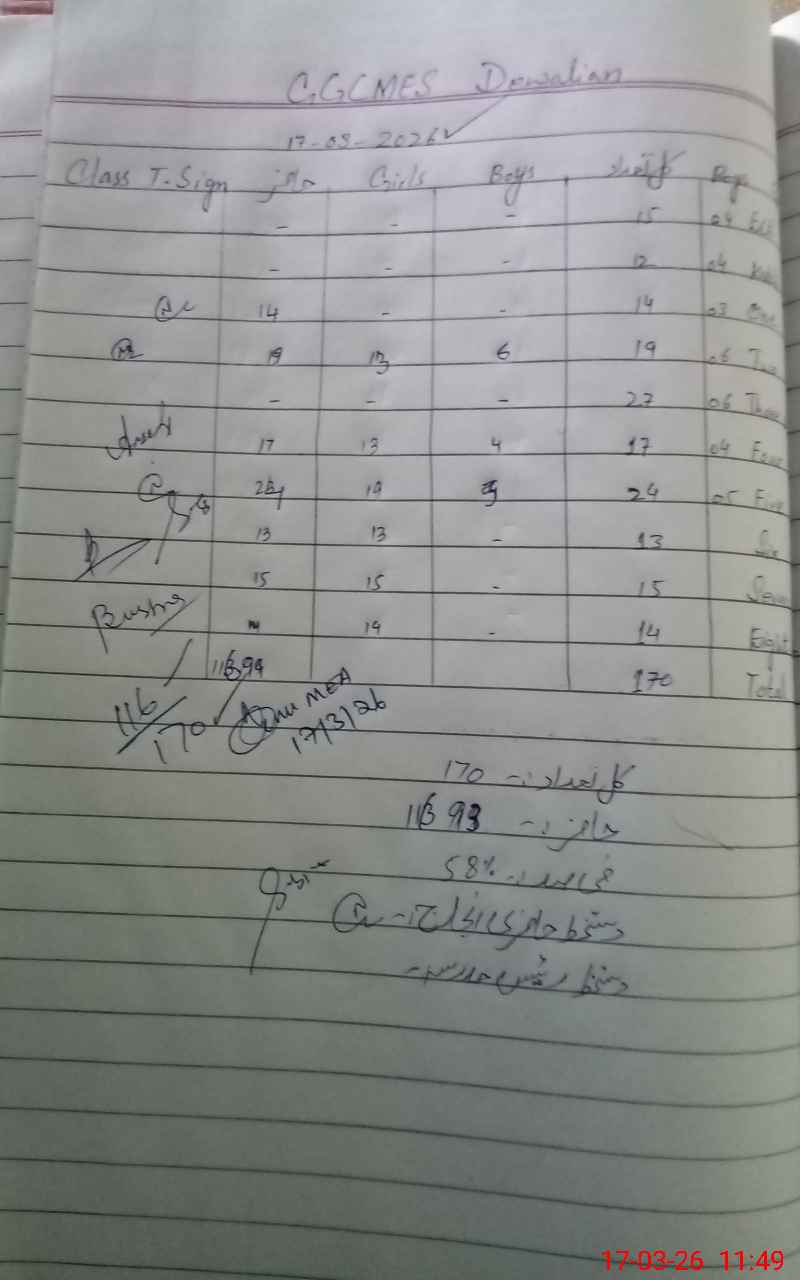 GGCMES Dewalian
17-03-2026
Class T-Sign حاضر Girls Boys کل تعداد Boys
- - - 15 04 ECE
- - - 12 04
14 - - 14 03 One
19 13 6 19 06 Two
- - - 27 06 Three
17 13 4 17 04 Four
24 19 5 24 05 Five
13 13 - 13 Six
15 15 - 15 Seven
14 - 14 Eight
94 170 Total
116/170 MEA
17/3/26
کل تعداد :- 170
حاضر :- 93
فیصد :- 58%
دستخط
دستخط
17-03-26 11:49